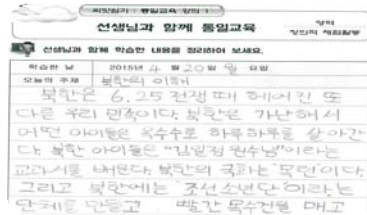 씨앗심기 : 통일교육 강의 1
선생님과 함께 통일교육
창의적 체험활동
선생님과 함께 학습한 내용을 정리하여 보세요.
학습한 날 2015년 4 월 20일 월 요일
오늘의 주제 북한의 이해
북한은 6.25 전쟁 때 헤어진 또
다른 우리 민족이다. 북한은 가난해서
어떤 아이들은 옥수수로 하루하루를 살아간
다. 북한 아이들은 "김일성 원수님"이라는
교과서를 배운다. 북한의 국화는 '목련'이다.
그리고 북한에는 '조선소년단'이라는
단체를 만들고 빨간 목수건을 매고